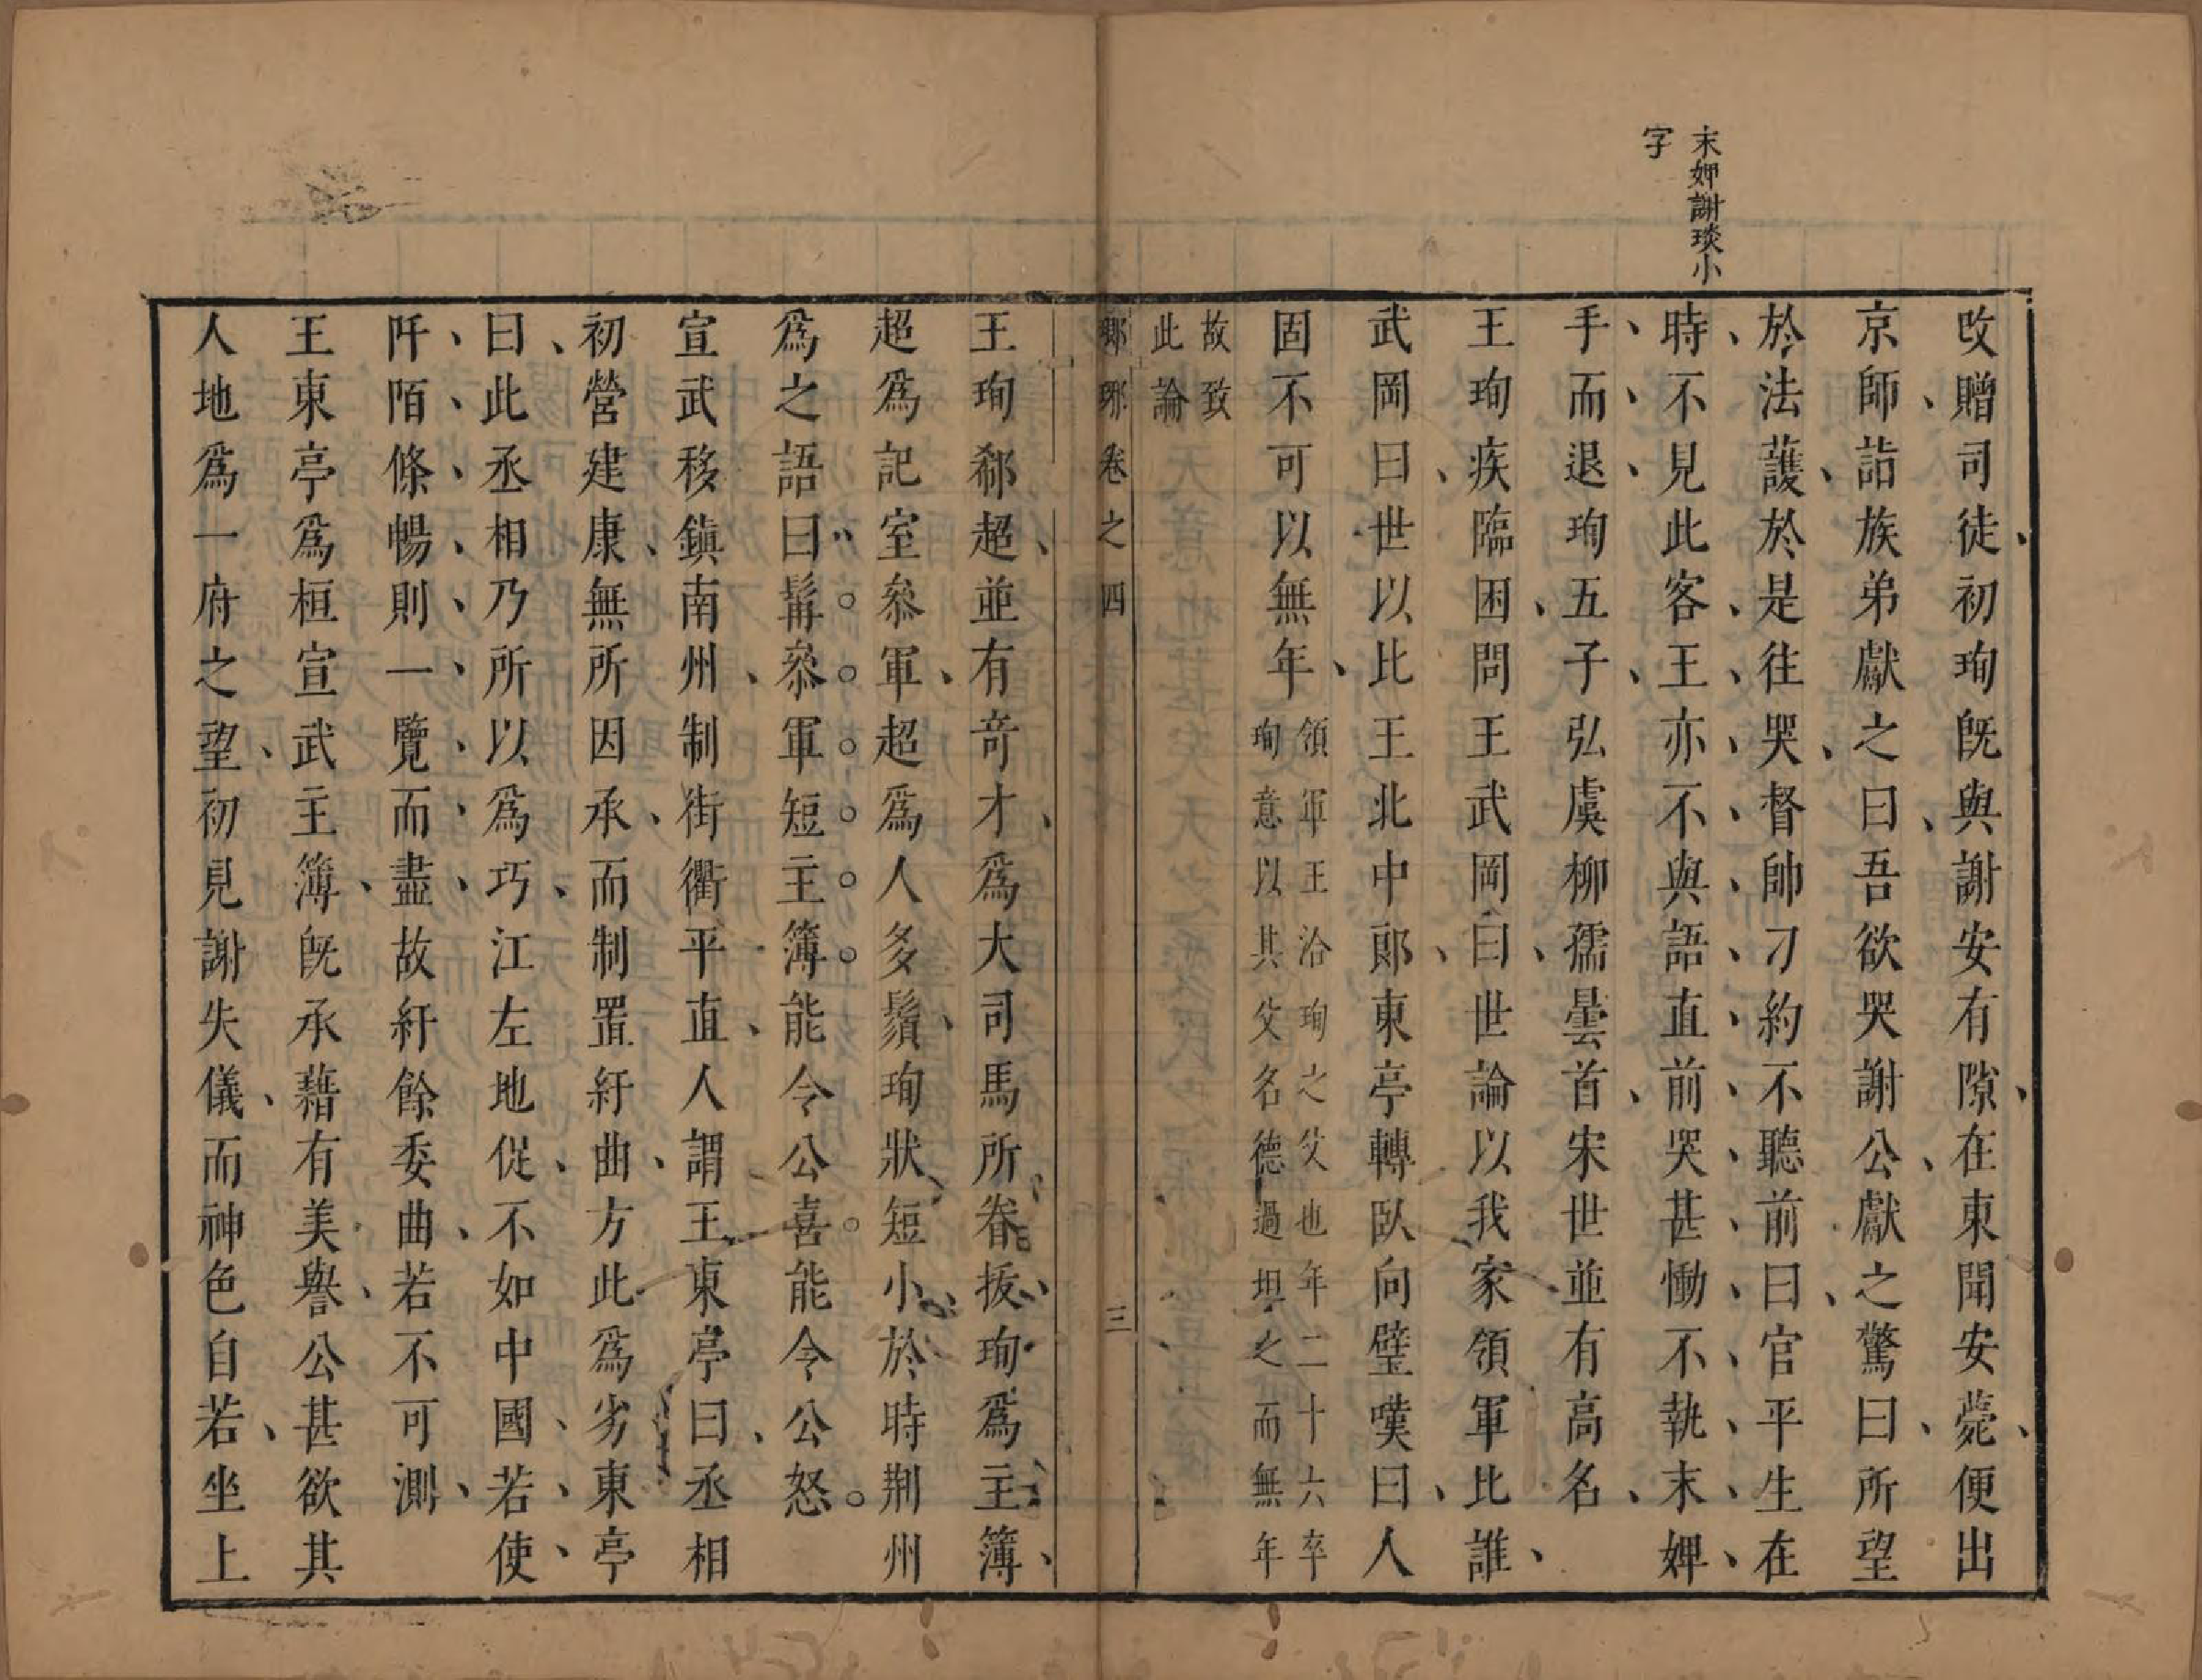 末婢謝琰小
字
改贈司徒初珣旣與謝安有隙在東聞安薨便出
京師詣族弟獻之曰吾欲哭謝公獻之驚曰所望
於法護於是往哭督帥刁約不聽前曰官平生在
時不見此客王亦不與語直前哭甚慟不執末婢
手而退珣五子弘虞柳孺曇首宋世並有高名
王珣疾臨困問王武岡曰世論以我家領軍比誰
武岡曰世以比王北中郎東亭轉臥向壁嘆曰人
固不可以無年領軍王洽珣之父也年二十六卒
珣意以其父名德過坦之而無年
故致
此論
鄉琊卷之四
三
王珣郗超並有奇才爲大司馬所眷拔珣爲主簿
超爲記室叅軍超爲人多鬚珣狀短小於時荆州
爲之語曰髯叅軍短主簿能令公喜能令公怒
宣武移鎮南州制街衢平直人謂王東亭曰丞相
初營建康無所因承而制置紆曲方此爲劣東亭
曰此丞相乃所以爲巧江左地促不如中國若使
阡陌條暢則一覽而盡故紆餘委曲若不可測
王東亭爲桓宣武主簿旣承藉有美譽公甚欲其
人地爲一府之望初見謝失儀而神色自若坐上